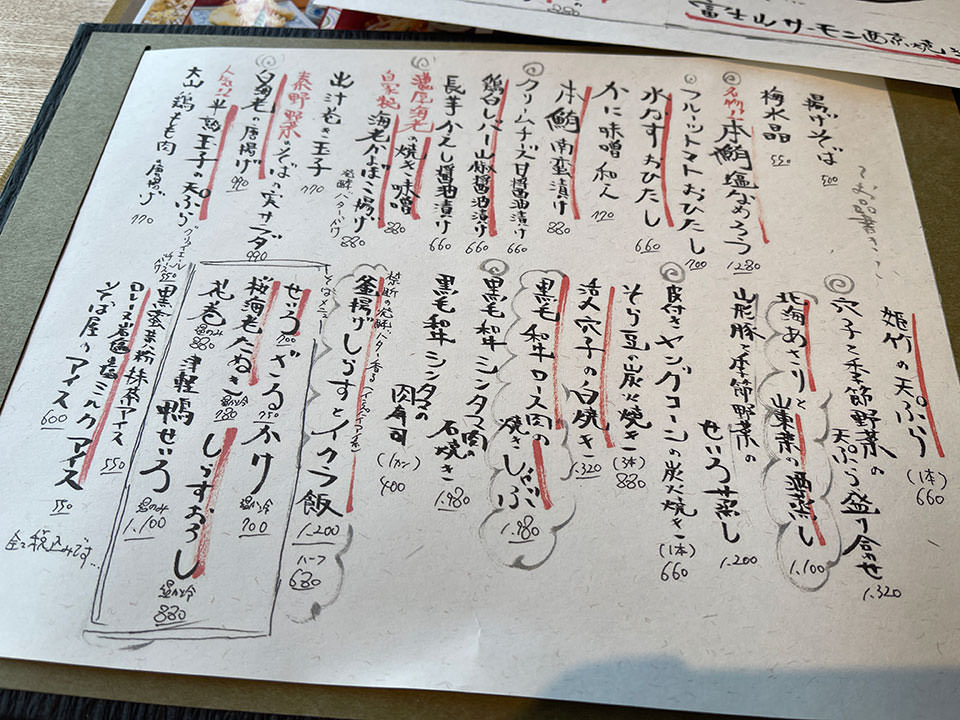 富士山サーモン西京焼き
〜お品書き〜
揚げそば 500
梅水晶 550
名物!! 本鮪塩なめろう 1280
フルーツトマトおひたし 700
水なすおひたし 660
かに味噌和え 770
本鮪南蛮漬け 880
クリームチーズ甘醤油漬け 660
鶏白レバー山椒醤油漬け 660
長芋かえし醤油漬け 660
濃厚海老の焼き味噌 880
自家製 海老かまぼこ揚げ 発酵バターがけ 880
出汁巻き玉子 770
秦野野菜のそばの実サラダ 990
白海老の唐揚げ 990
人気!! 半熟玉子の天ぷら 550
大山鶏もも肉の唐揚げ 770
姫竹の天ぷら (1本) 660
穴子と季節野菜の天ぷら盛り合わせ 1.320
北海あさりと山東菜の酒蒸し 1.100
山形豚と季節野菜のせいろ蒸し 1.200
皮付きヤングコーンの炭火焼き (1本) 660
そら豆の炭火焼き (3本) 880
活〆穴子の白焼き 1.320
黒毛和牛ロース肉の焼きしゃぶ 1.980
黒毛和牛シンタマ肉の石焼き 1.980
黒毛和牛シンタマの肉寿司 (1カン) 400
禁断の発酵バター香る
釜揚げしらすとイクラ飯 1.200 ハーフ 680
そばメニュー
せいろ 700 ざる 750 かけ 温か冷 700
桜海老たぬき 温か冷 980 しらすおろし 温か冷 880
花巻 温のみ 880 津軽鴨せいろ 温のみ 1.100
黒蜜黄粉抹茶アイス 550
ロレーヌ岩塩の塩ミルクアイス 550
そば屋のアイス 600
全て税込みです…